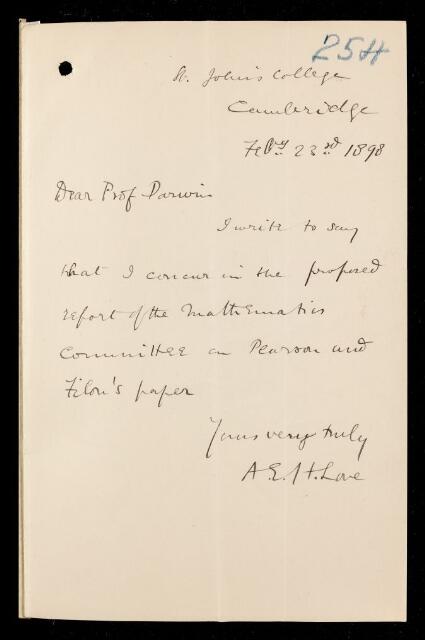 254
St. John's College
Cambridge
Feby 23rd 1898
Dear Prof Darwin
I write to say
that I concur in the proposed
report of the Mathematics
Committee on Pearson and
Filon's paper
Yours very truly
A.E.H.Love